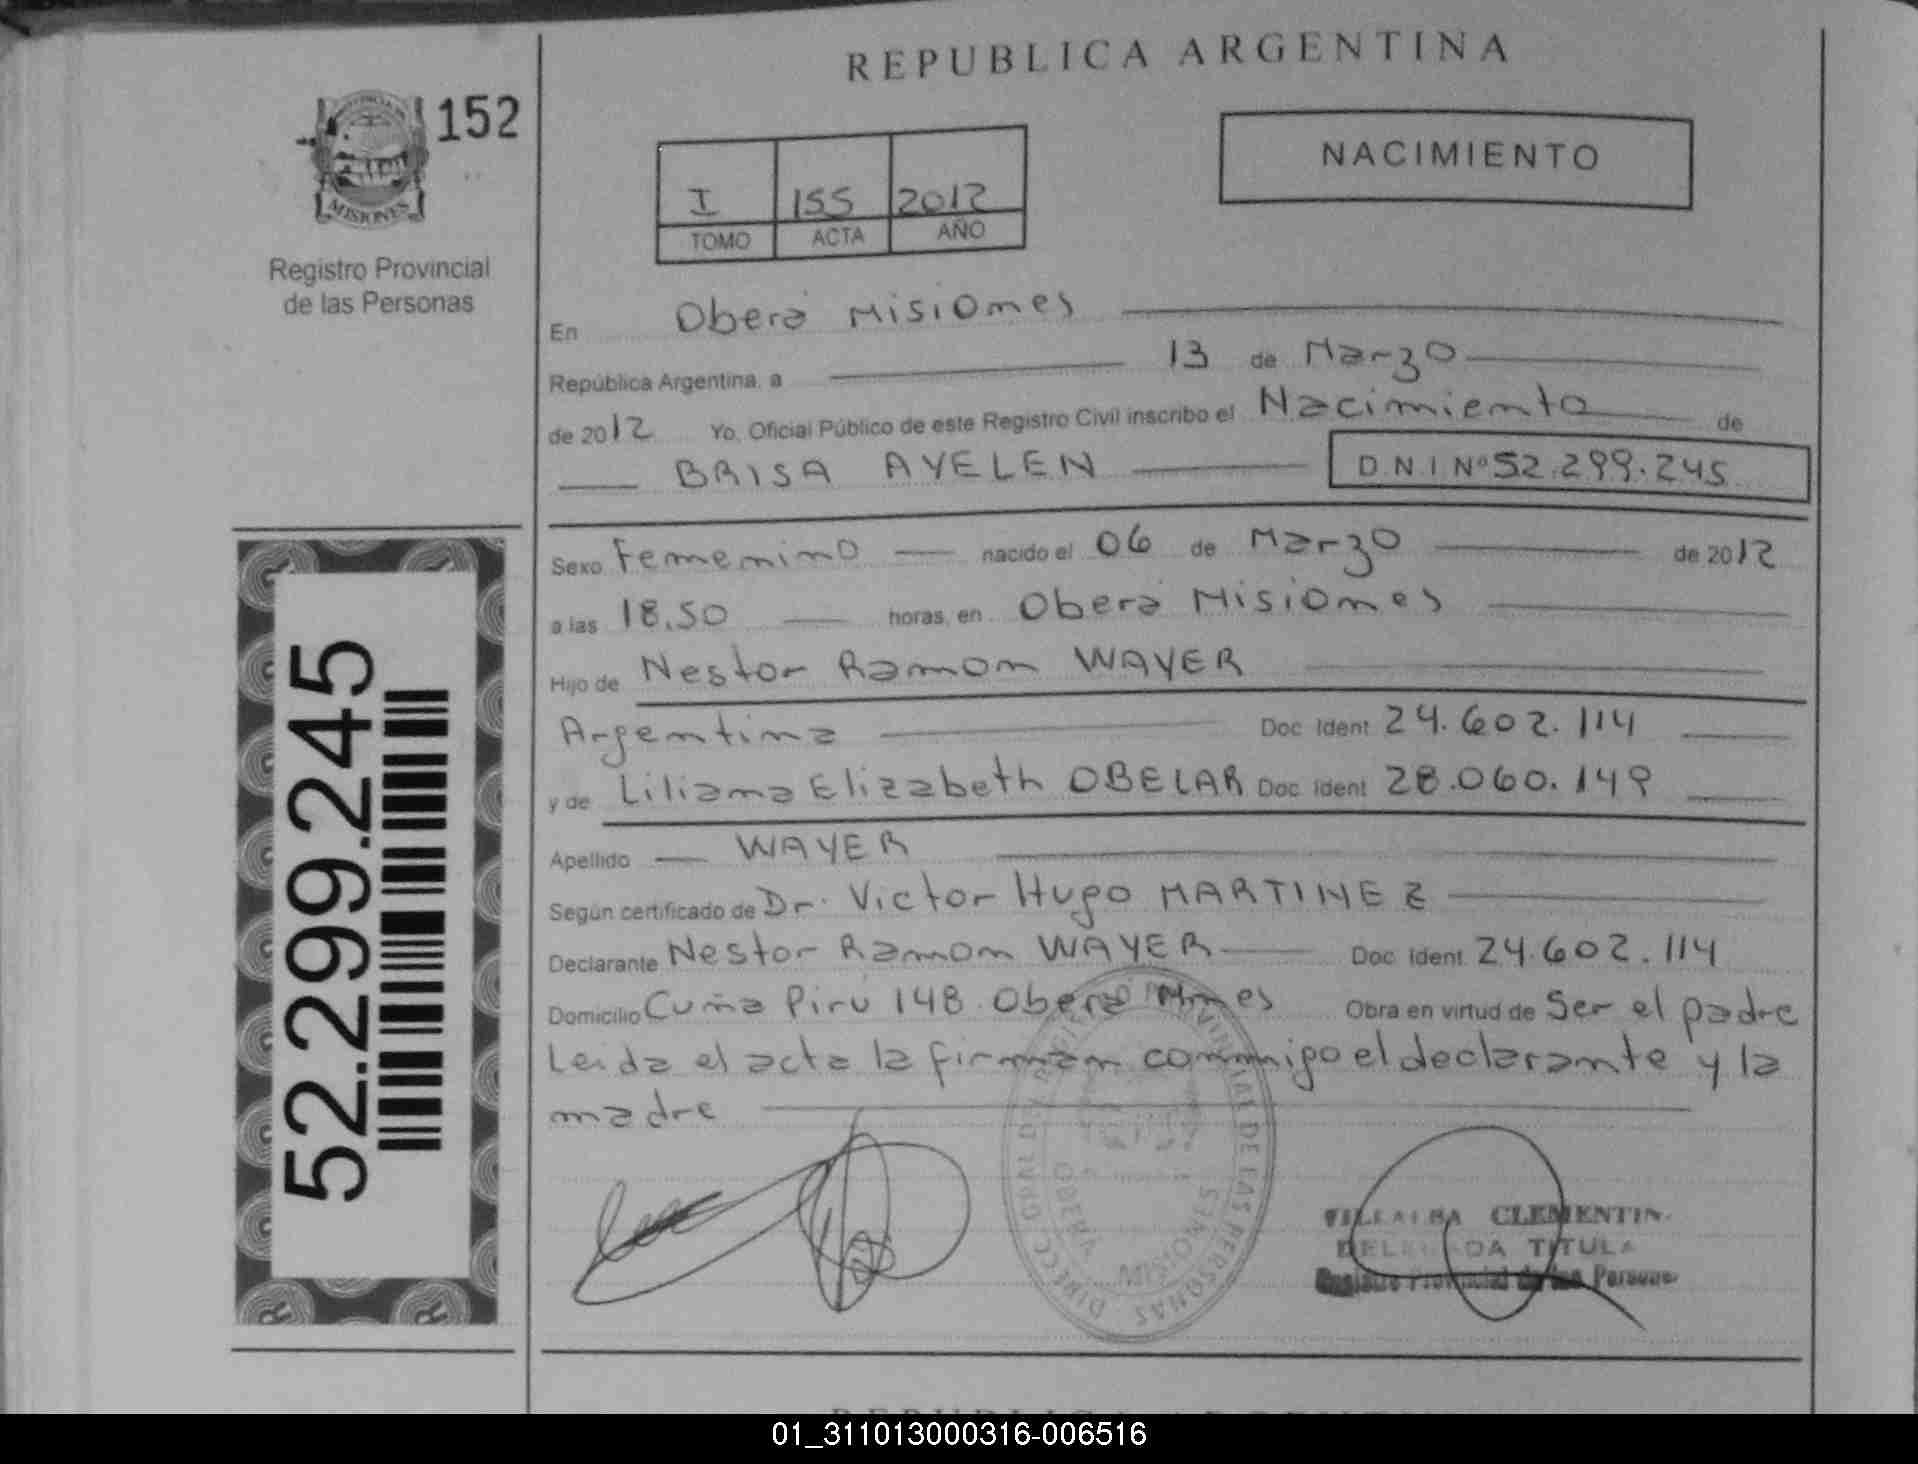 REPUBLICA ARGENTINA
152
MISIONES
Registro Provincial
de las Personas
NACIMIENTO
I 155 2012
TOMO ACTA AÑO
En Oberá Misiones
República Argentina, a 13 de Marzo
de 2012 Yo, Oficial Público de este Registro Civil inscribo el Nacimiento de
BRISA AYELEN D.N.I Nº 52.299.245
Sexo Femenino nacido el 06 de Marzo de 2012
a las 18.50 horas, en Oberá Misiones
Hijo de Nestor Ramon WAYER
Argentina Doc Ident 24.602.114
y de Liliana Elizabeth OBELAR Doc Ident 28.060.149
Apellido WAYER
Según certificado de Dr. Victor Hugo MARTINEZ
Declarante Nestor Ramon WAYER Doc Ident 24.602.114
Domicilio Cuña Pirú 148 Oberá Mnes Obra en virtud de Ser el padre
Leida el acta la firman conmigo el declarante y la
madre
52.299.245
DIRECC GRAL DEL PROVINCIAL DE LAS PERSONAS
OBERA MISIONES
VILLALBA CLEMENTIN
DELEGADA TITULA
Registro Provincial de las Personas
01_311013000316-006516